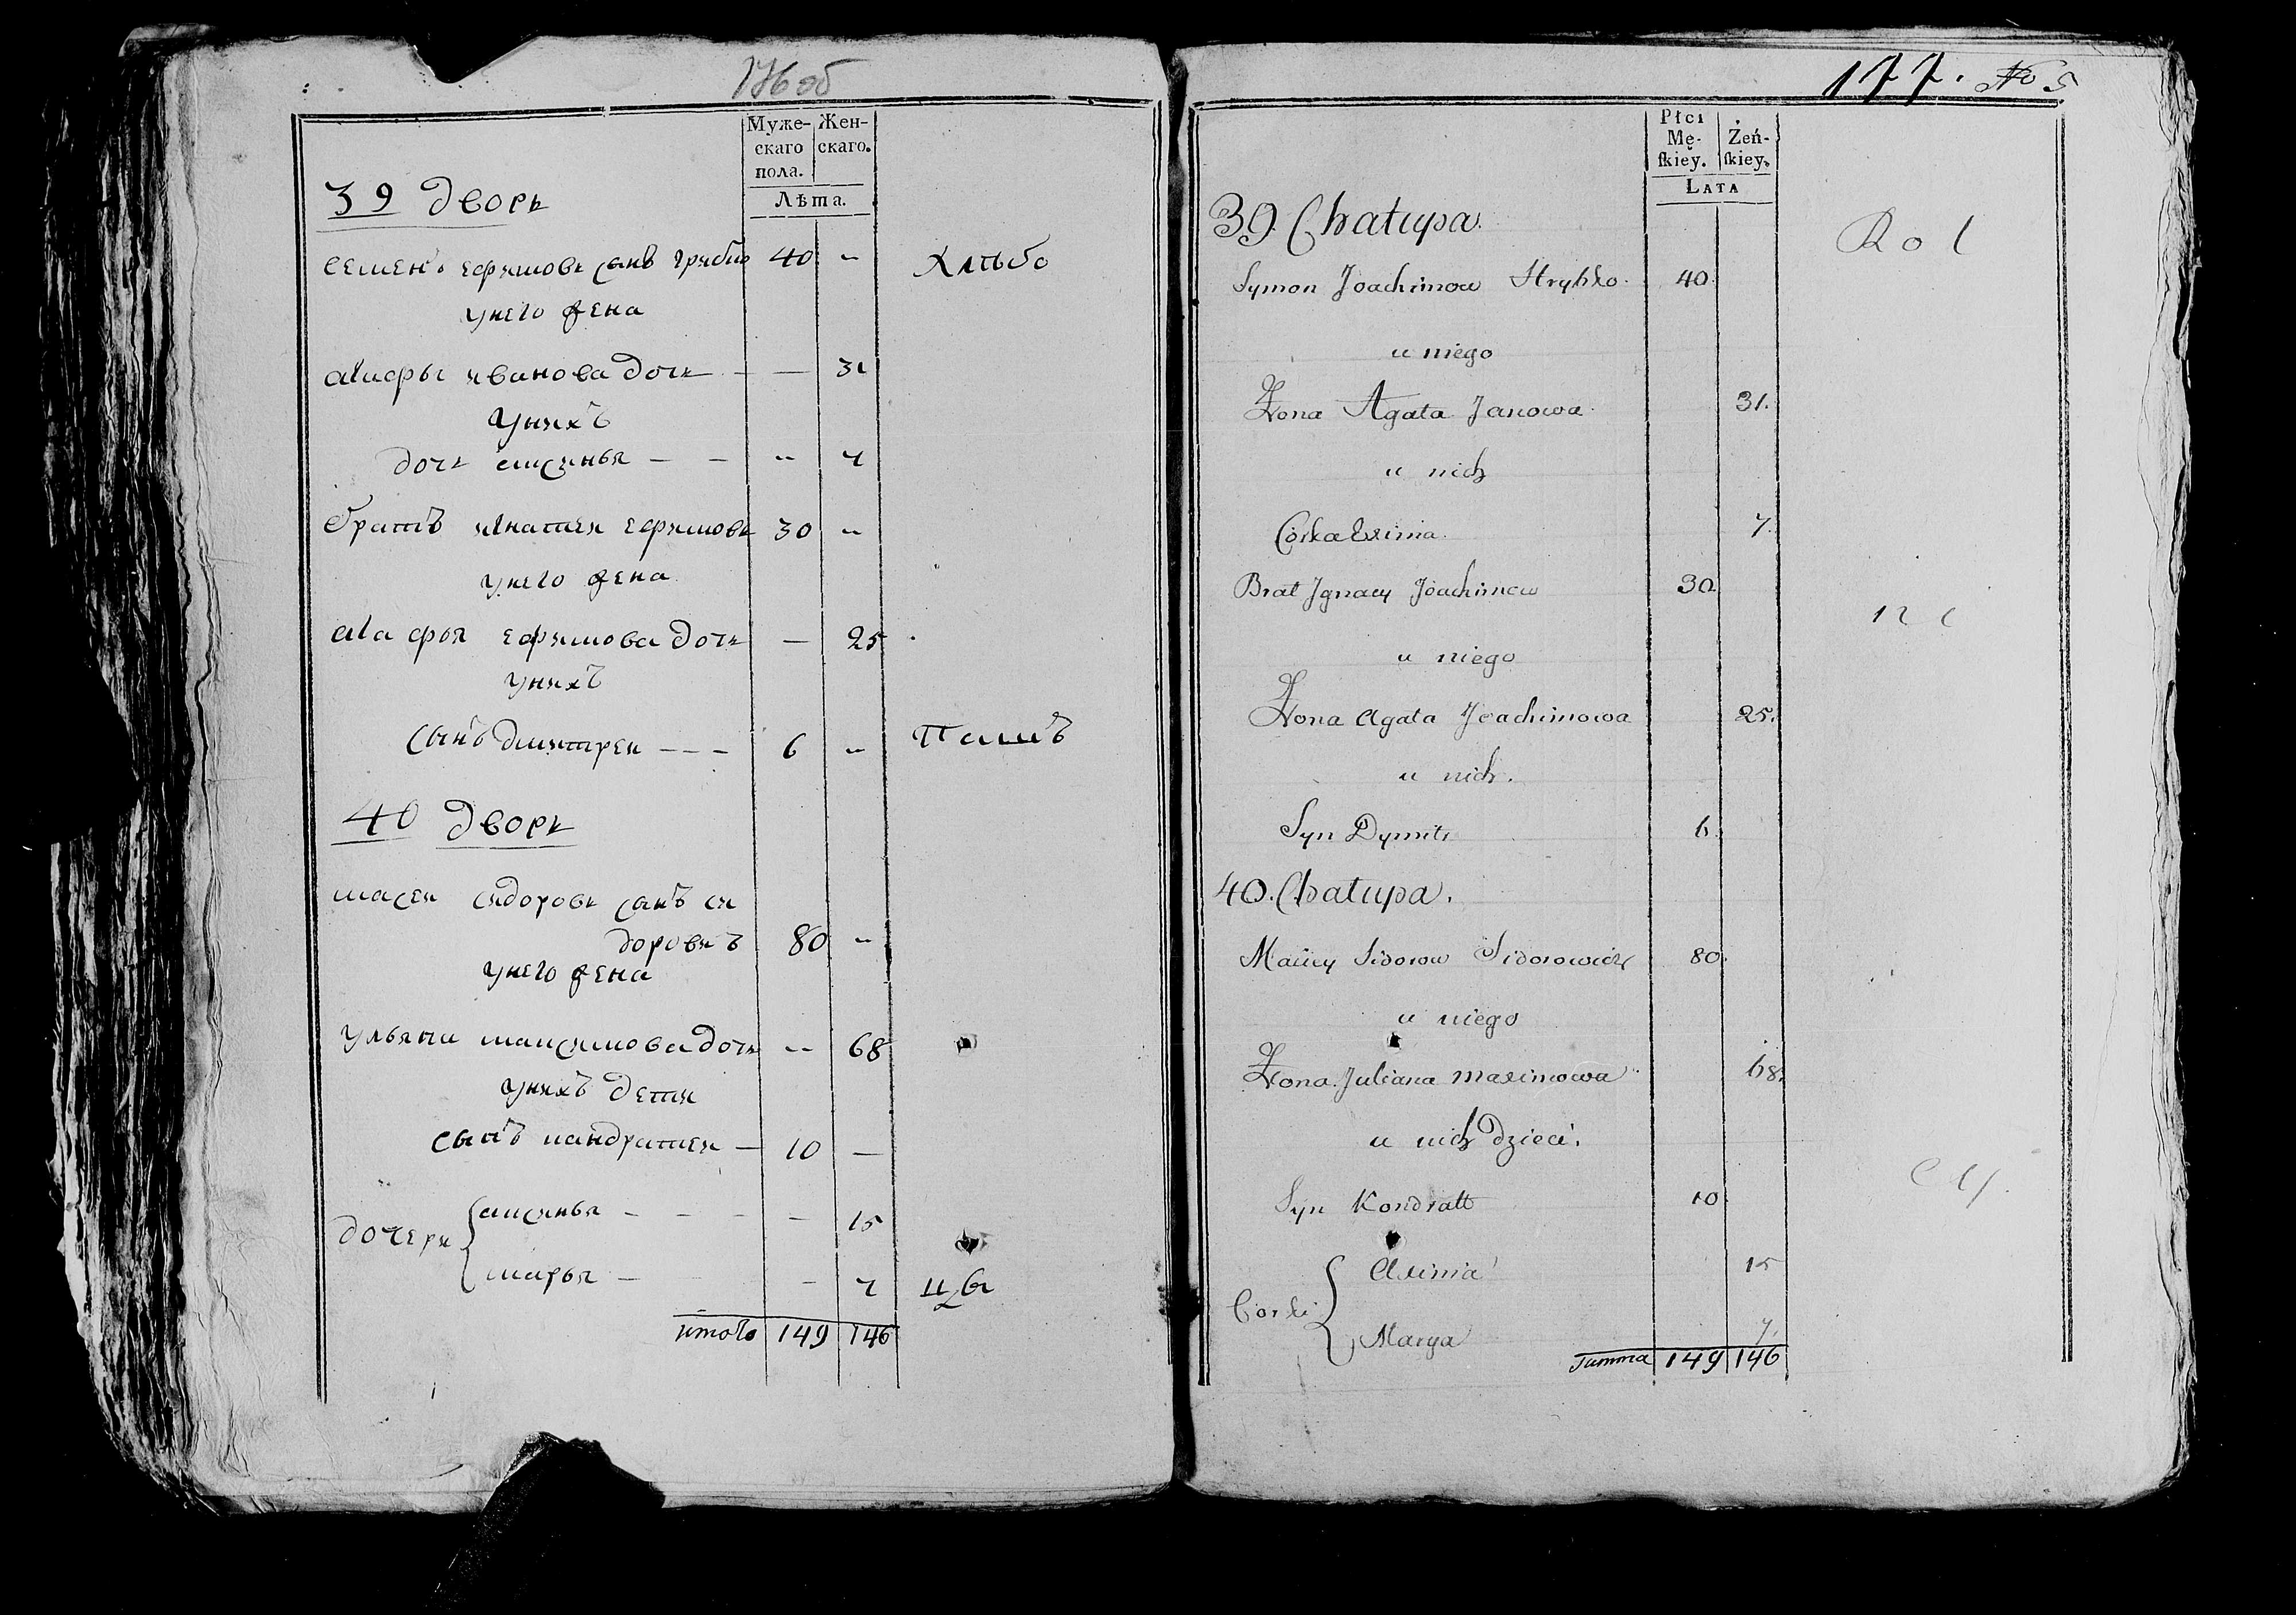 176 об
Муже-
скаго
пола.
Жен-
скаго.
Лѣта.
39 дворъ
семенъ ефимовъ сынъ грибко 40 "
хлѣбо
у него жена
агафья иванова дочь - — 31
у нихъ
дочь аксинья — — " 7
братъ игнатей ефимовъ 30 "
у него жена
агафья ефимова дочь — 25
у нихъ
сынъ дмитрей — — — 6 "
пашъ
40 дворъ
масей сидоровъ сынъ си
доровичъ 80 "
у него жена
ульяна максимова дочь " 68
у нихъ дети
сынъ кандратей — 10 —
дочери
аксинья — - - — 15
марья — - 7
цы
итого 149 146
177. No 5
Płci
Mę-
ſkiey.
Żeń-
ſkiey.
Lata
39. Chałupa.
Rol
Symon Joachimow Hrybko. 40.
u niego
Żona Agata Janowa. 31.
u nich
Córka Axinia. 7.
Brat Ignacy Joachimow 30.
ni
u niego
Żona Agata Joachimowa 25.
u nich.
Syn Dymitr 6.
40. Chałupa.
Maciey Sidorow Sidorowicz 80.
u niego
Żona Juliana Maximowa 68.
u nich dzieci.
Syn Kondratt 10.
cy.
Corki
Axinia 15
Marya 7.
Summa 149 146